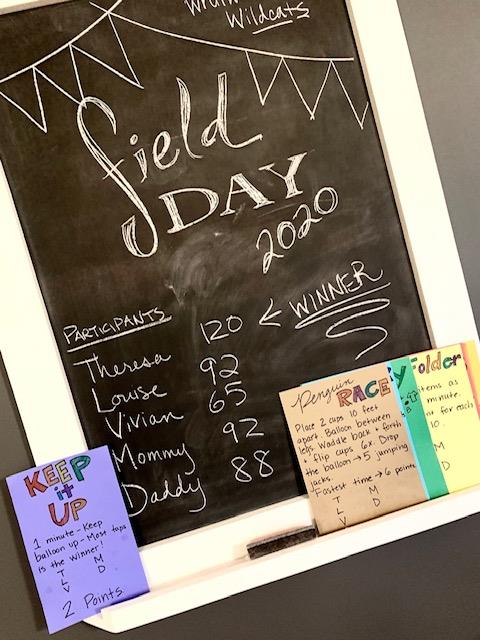 Wildcats
field
DAY
2020
PARTICIPANTS
Theresa 120 < WINNER
Louise 92
Vivian 65
Mommy 92
Daddy 88
KEEP
it
UP
1 minute - Keep
balloon up - Most taps
is the winner!
T M
L D
V
2 Points
Penguin RACE
Place 2 cups 10 feet
apart. Balloon between
legs. Waddle back + forth
+ flip cups 6x. Drop
the balloon → 5 jumping
jacks.
Fastest time → 6 points
T M
L D
V
Folder
items as
minute.
for each
10.
M
D